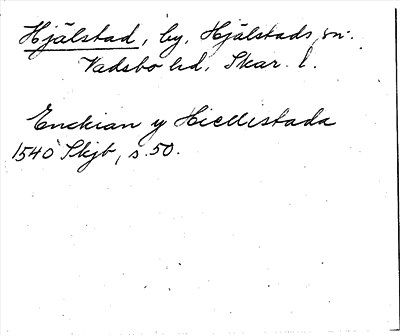 Hjälstad, by, Hjälstads sn.
Vadsbo hd, Skar. l.
Enckian y Hiellistada
1540 Skjb, s. 50.